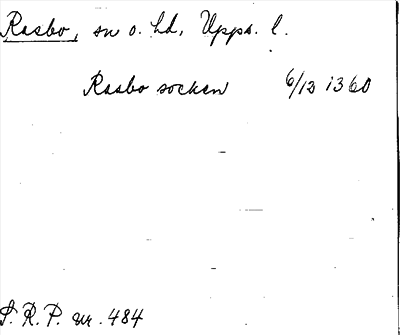 Rasbo, sn o. hd, Upps. l.
Rasbo socken 6/12 1360
S. R. P. nr. 484